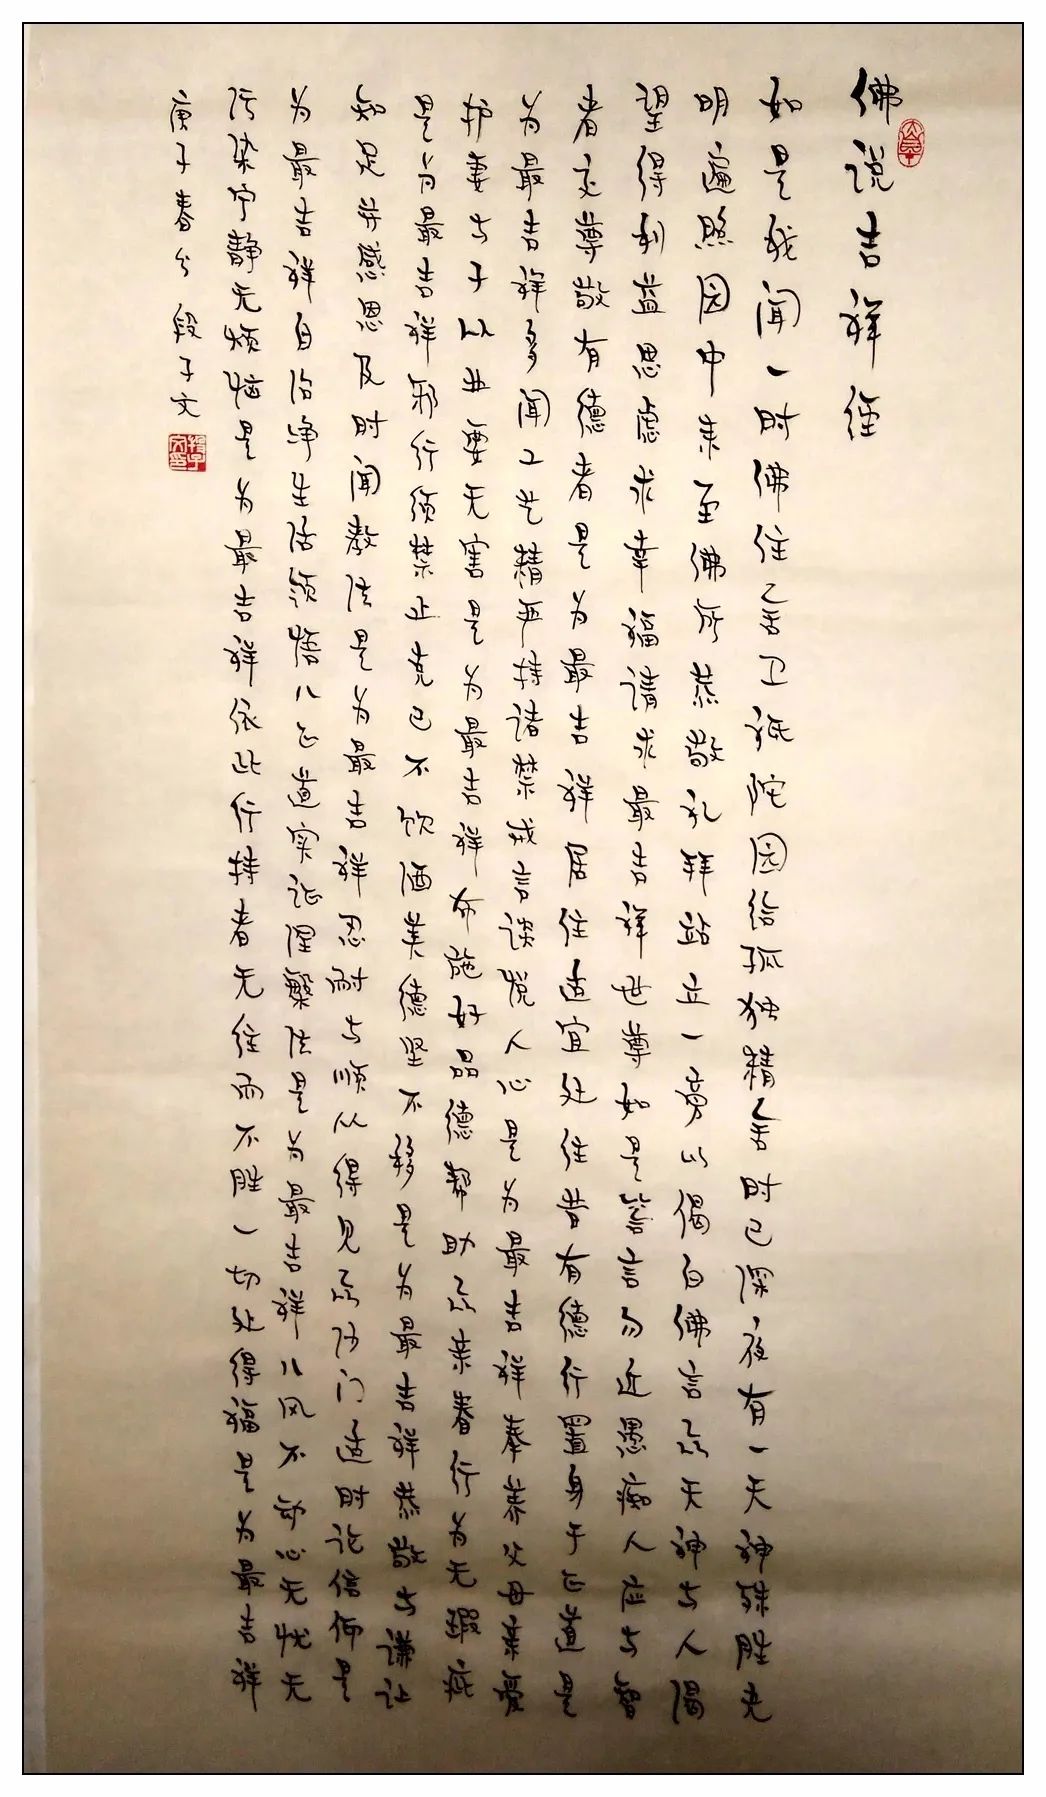 佛说吉祥经
如是我闻一时佛住舍卫祇陀园给孤独精舍时已深夜有一天神殊胜光
明遍照园中来至佛所恭敬礼拜站立一旁以偈白佛言众天神与人渴
望得利益思虑求幸福请求最吉祥世尊如是答言勿近愚痴人应与智
者交尊敬有德者是为最吉祥居住适宜处往昔有德行置身于正道是
为最吉祥多闻工艺精严持诸禁戒言谈悦人心是为最吉祥奉养父母亲爱
护妻与子从业要无害是为最吉祥布施好品德帮助众亲眷行为无瑕疵
是为最吉祥邪行须禁止克己不饮酒美德坚不移是为最吉祥恭敬与谦让
知足并感恩及时闻教法是为最吉祥忍耐与顺从得见众沙门适时论信仰是
为最吉祥自治净生活领悟八正道实证涅槃法是为最吉祥八风不动心无忧无
污染宁静无烦恼是为最吉祥依此行持者无往而不胜一切处得福是为最吉祥
庚子春分 段子文